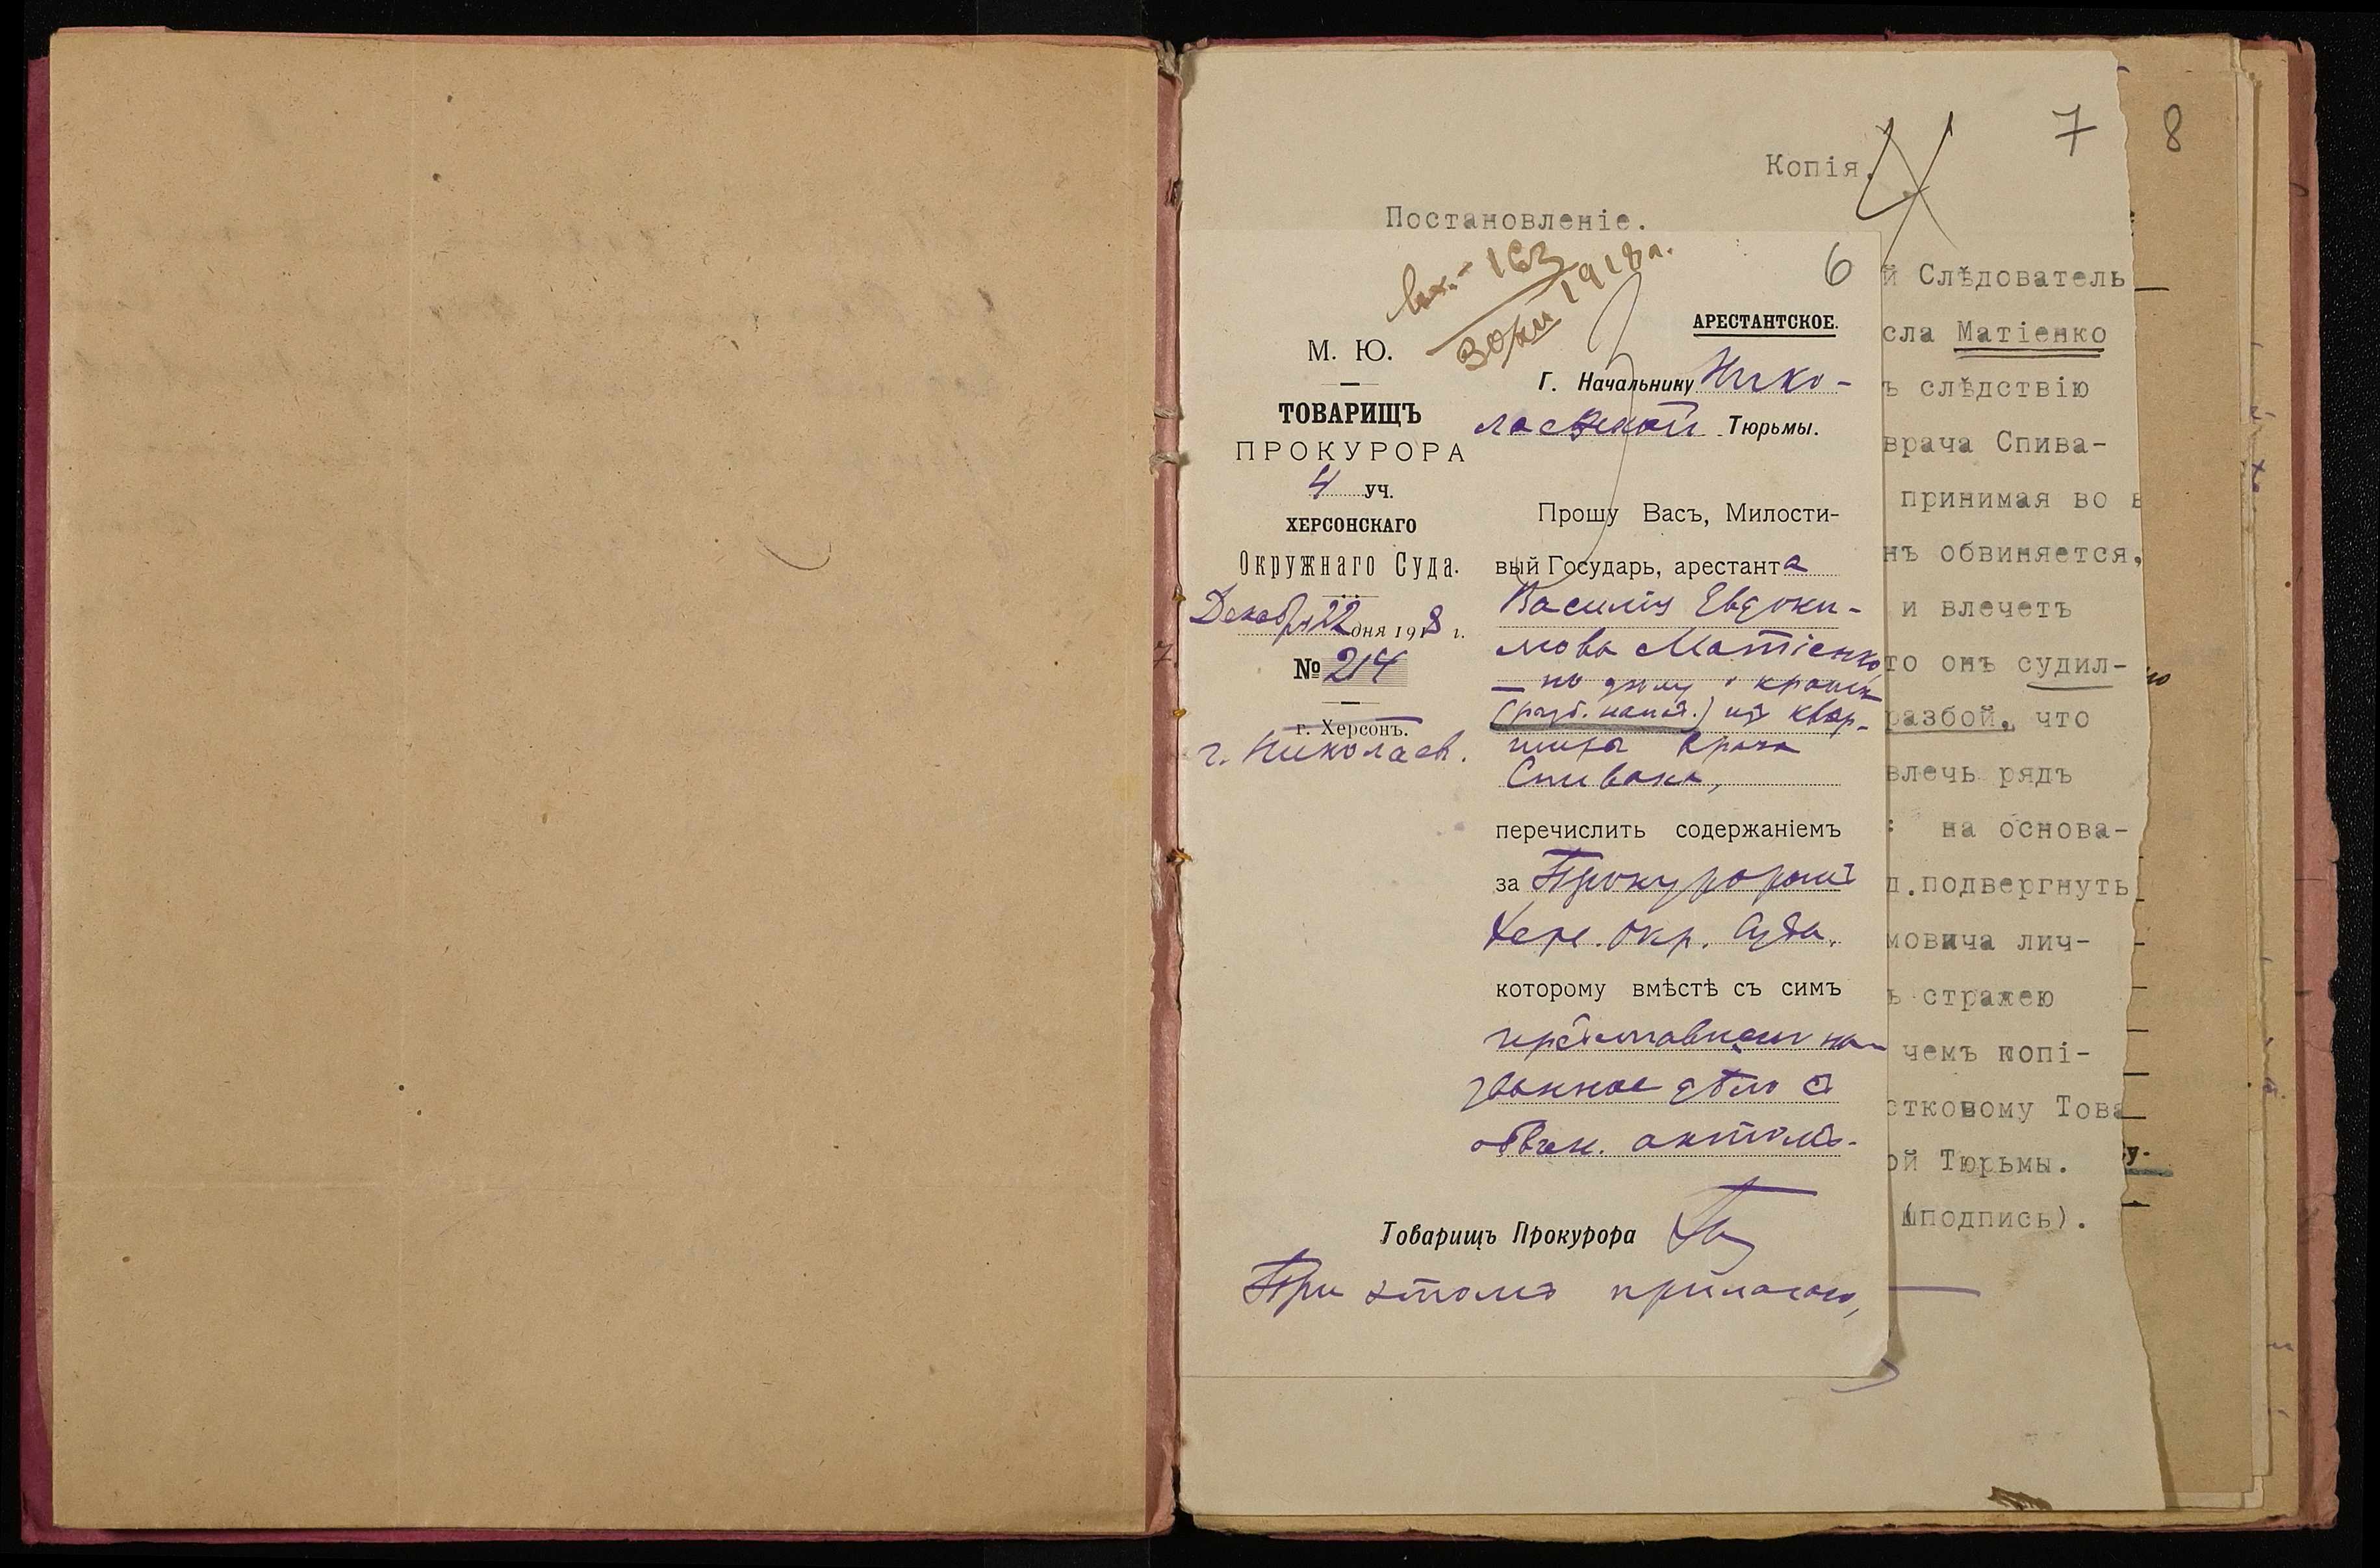 7
8
Копія.
Постановленіе.
вх. 163
30/XII 1918 г.
6
АРЕСТАНТСКОЕ.
М. Ю.
ТОВАРИЩЪ
ПРОКУРОРА
4 уч.
ХЕРСОНСКАГО
Окружнаго Суда.
Декабря 22 дня 1918 г.
№ 214
г. Херсонъ.
г. Николаев.
Г. Начальнику Нико-
лаевской Тюрьмы.
Прошу Васъ, Милости-
вый Государь, арестанта
Василія Евдоки-
мова Матіенко
— по дѣлу
(разб. напад.) изъ квар-
тиры врача
Спивака,
перечислить содержаніемъ
за Прокуроромъ
Херс. Окр. Суда.
которому вмѣстѣ съ симъ
на-
званное дѣло съ
обвин. актомъ.
Товарищъ Прокурора
При этомъ прилагаю,
й Слѣдователь
сла Матіенко
ъ слѣдствію
врача Спива-
принимая во в
нъ обвиняется,
и влечетъ
то онъ судил-
разбой, что
влечь рядъ
: на основа-
д.подвергнуть
мовича лич-
ъ стражею
чемъ копі-
стковому Това
ой Тюрьмы.
(подпись).